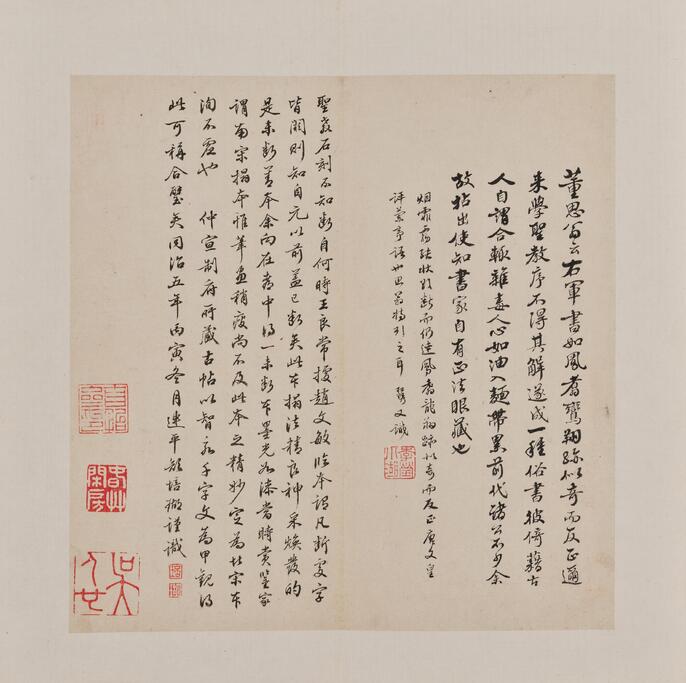 董思翁云右軍書如鳳翥鸞翔跡似奇而反正邇
来學聖教序不得其解遂成一種俗書彼倚藉古
人自謂合轍雜毒人心如油入麵帶累前代諸公不少余
故拈出使知書家自有正法眼藏也
烟霏露結狀若斷而仍連鳳翥龍翔跡似奇而反正唐文皇
評蘭亭語也思翁特引之耳 又識
聖教石刻不知斷自何時王良常據趙文敏臨本謂凡斷處字
皆闕則知自元以前蓋已斷矣此本搨法精良神采煥發的
是未斷善本余向在都中得一未斷本墨光如漆當時賞鑒家
謂南宋搨本惟筆畫稍瘦尚不及此本之精妙定為北宋本
洵不虛也 仲宣制府所藏古帖以智永千字文為甲觀得
此可稱合璧矣同治五年丙寅冬月連平顏培瑚謹識